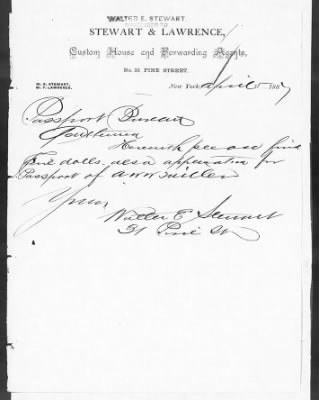 WALTER E. STEWART,
SUCCESSOR TO
STEWART & LAWRENCE,
Custom House and Forwarding Agents,
No. 31 PINE STREET,
W. E. STEWART.
W. F. LAWRENCE.
New York, April 188
Passport Bureau
Gentlemen
Herewith please find
five dolls. also application for
Passport of
Yours
Walter E Stewart
31 Pine St